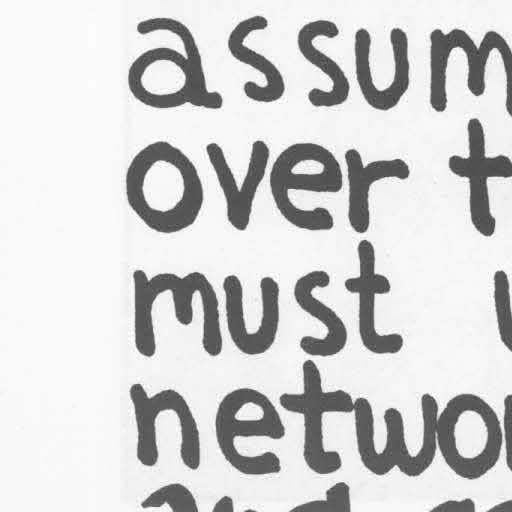 assum
over t
must
networ